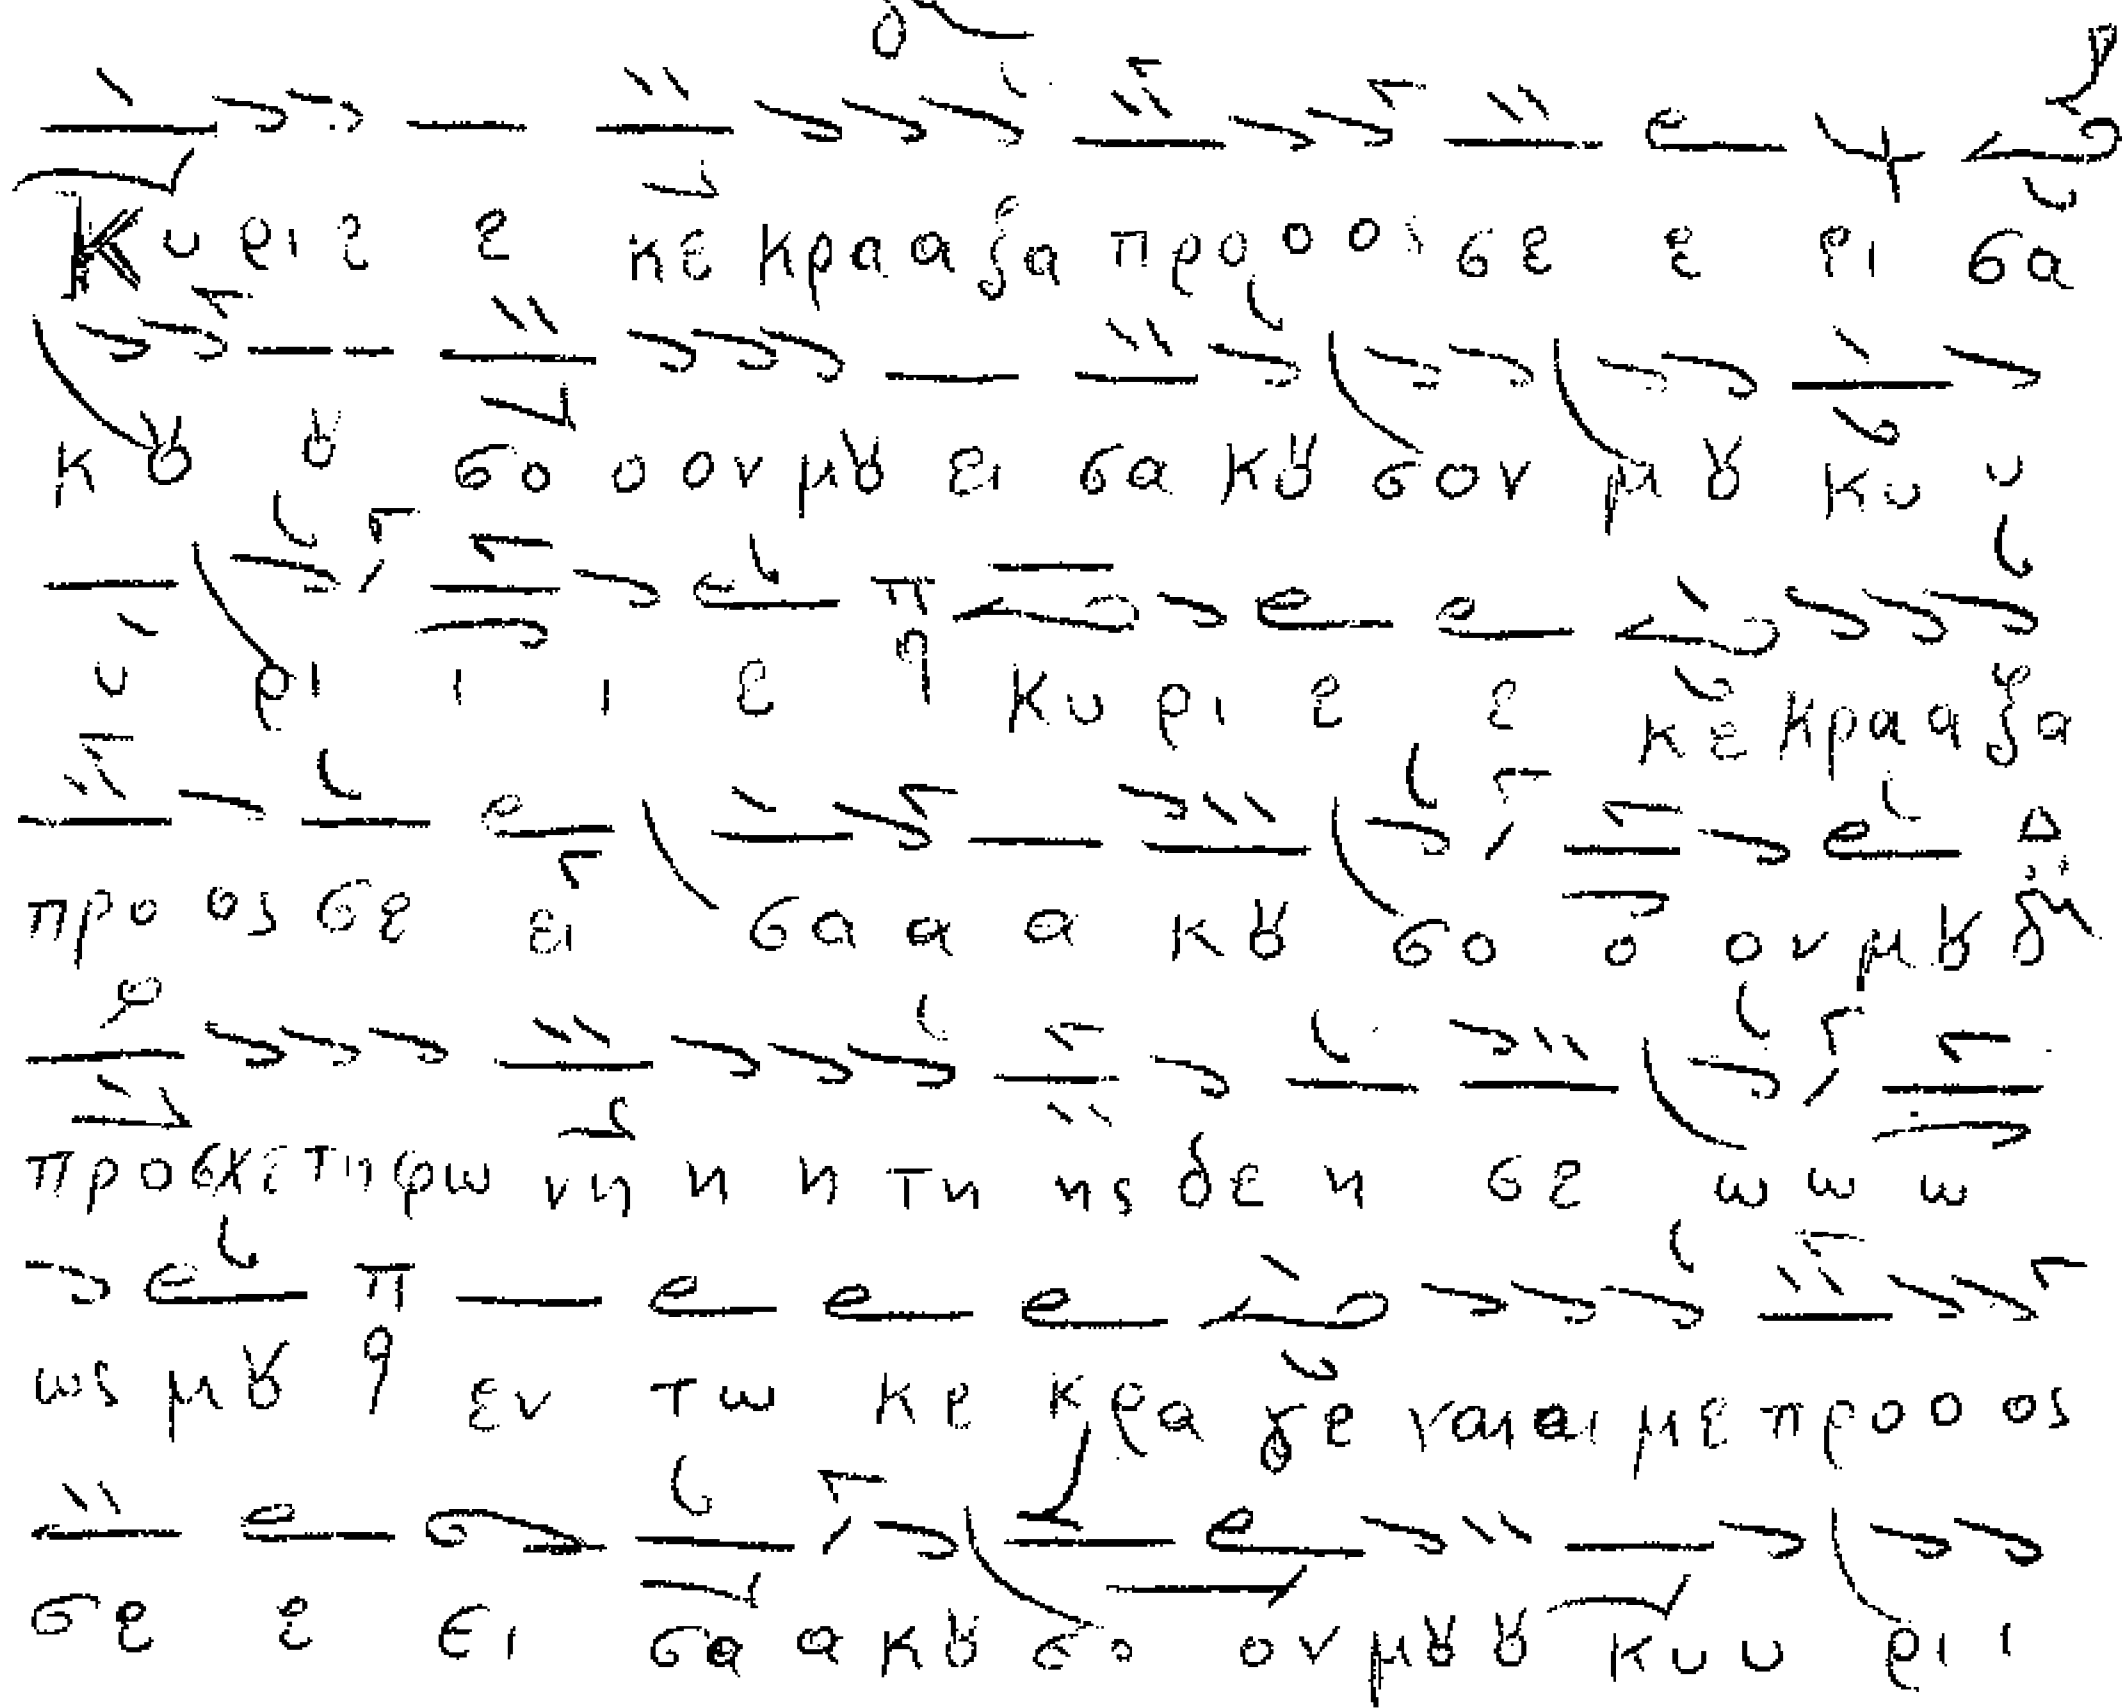 Κυ ρι ε ε κε κρα α ξα προ ο ος σε ε ει σα
κ ȣ ȣ σο ο ον μȣ ει σα κȣ σον μ ȣ Κυ υ
υ ρι ι ι ε Κυ ρι ε ε κε κρα α ξα
προ ος σε ει σα α α κ ȣ σο ο ον μȣ
προσχε τη φω νη η η τη ης δε η σε ω ω ω
ως μȣ εν τω κε κρα γε ναι αι με προ ο ος
σε ε ει σα α κȣ σο ον μȣ ȣ Κυ υ ρι ι